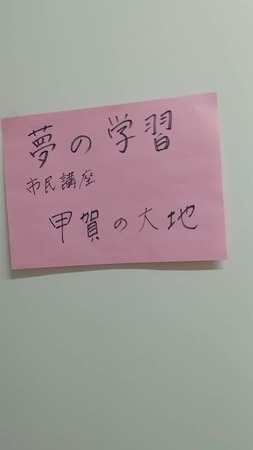 夢の学習
市民講座
甲賀の大地